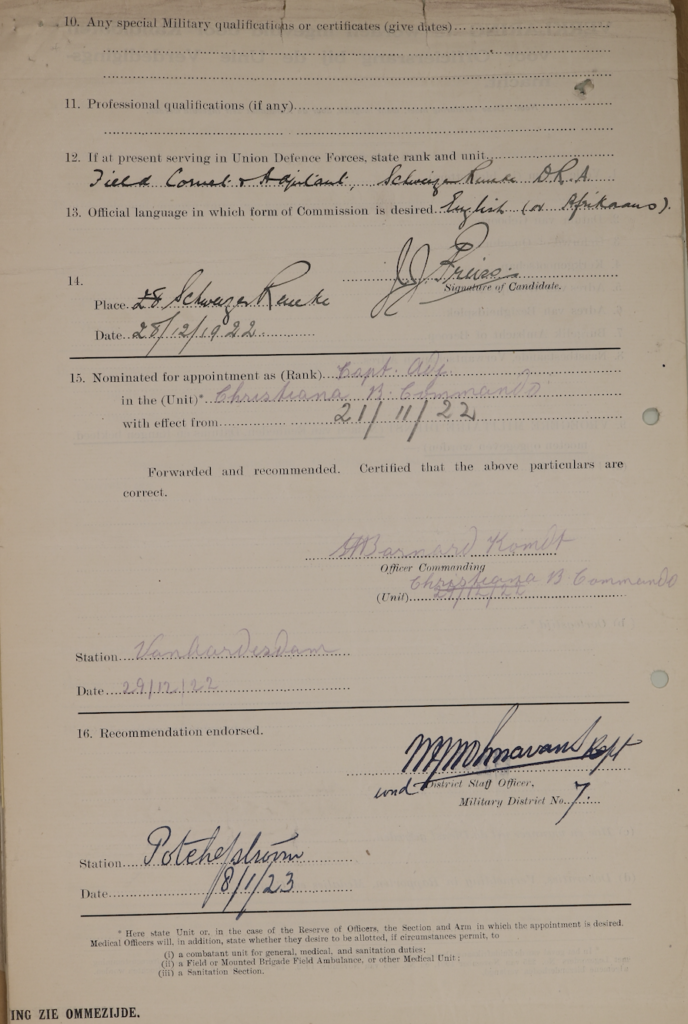 10. Any special Military qualifications or certificates (give dates)
11. Professional qualifications (if any)
12. If at present serving in Union Defence Forces, state rank and unit
Field Cornet & Adjutant, Schweizer Reneke D.R.A.
13. Official language in which form of Commission is desired. English (or Afrikaans).
14.
J J
Signature of Candidate.
Place Schweizer Reneke
Date 28/12/1922
15. Nominated for appointment as (Rank) Capt. Adj.
in the (Unit)* Christiana B. Commando
with effect from 21/11/22
Forwarded and recommended. Certified that the above particulars are
correct.
Barnard Komdt
Officer Commanding
Christiana B Commando
(Unit) 29/12/22
Station
Date 29/12/22
16. Recommendation endorsed.
Kapt
District Staff Officer,
Military District No. 7.
Station Potchefstroom
Date 8/1/23
* Here state Unit or, in the case of the Reserve of Officers, the Section and Arm in which the appointment is desired.
Medical Officers will, in addition, state whether they desire to be allotted, if circumstances permit, to
(i) a combatant unit for general, medical, and sanitation duties;
(ii) a Field or Mounted Brigade Field Ambulance, or other Medical Unit;
(iii) a Sanitation Section.
ING ZIE OMMEZIJDE.